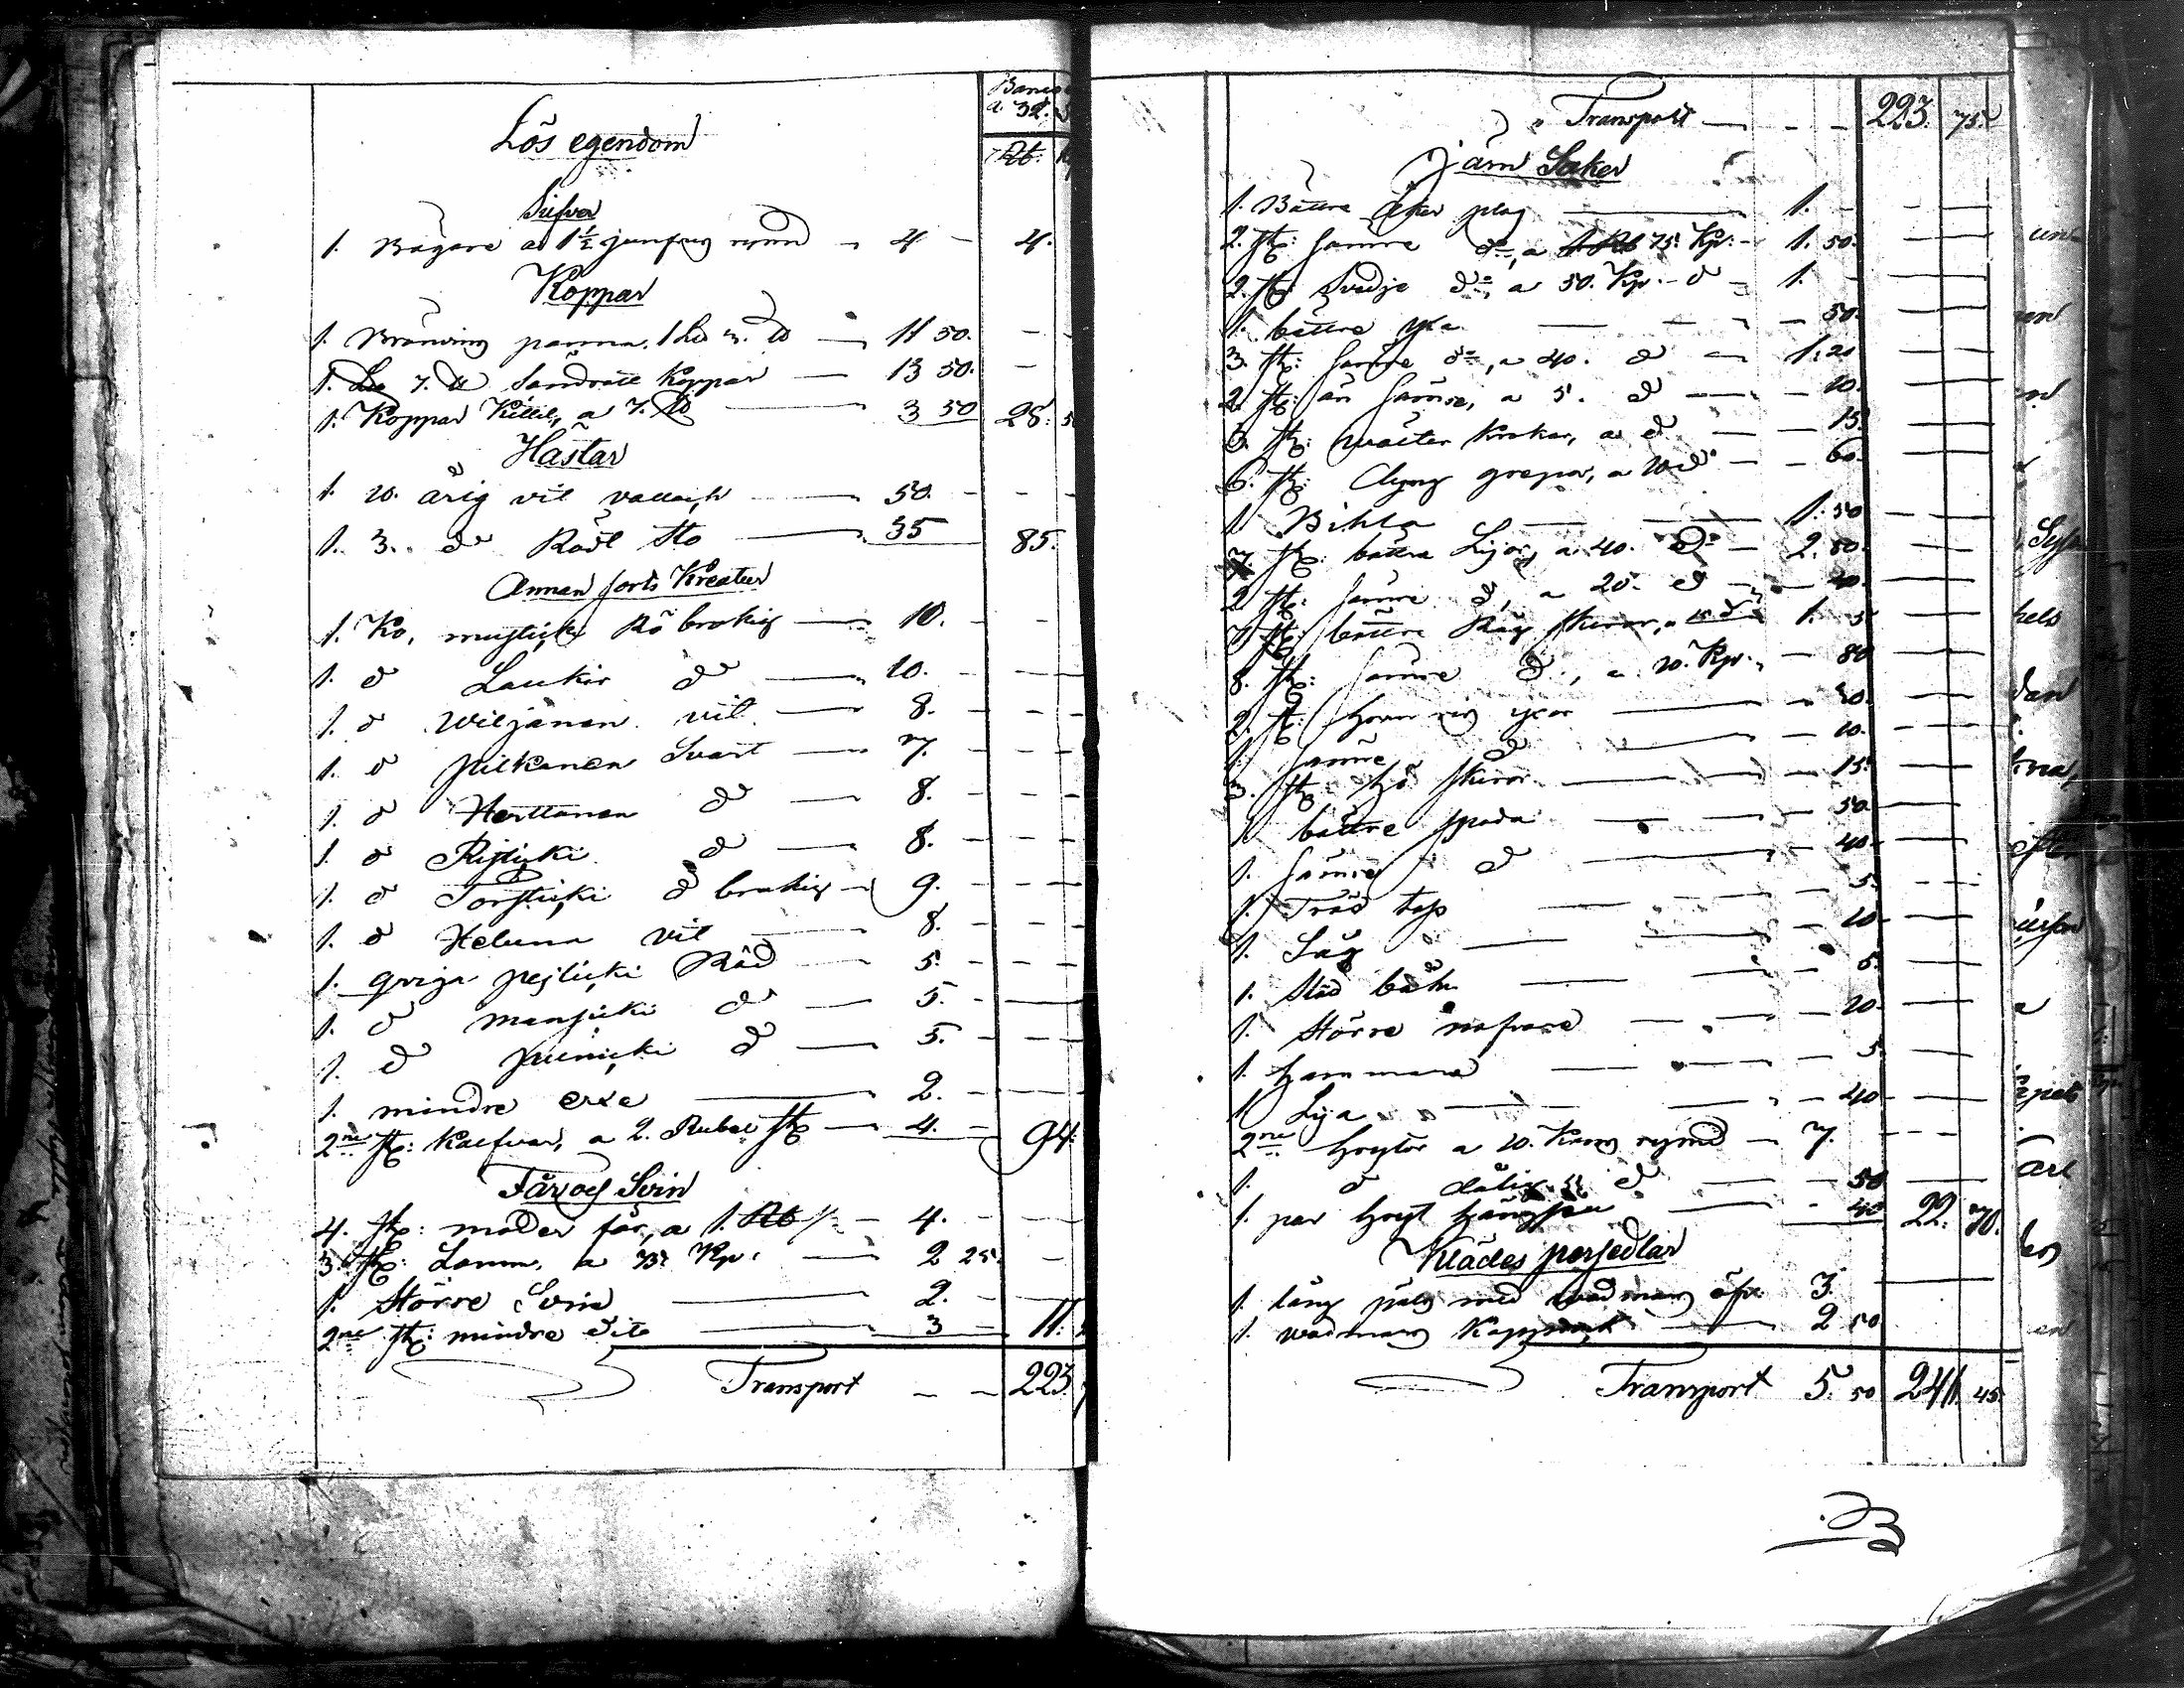 Banco
a. 32.
Lös egendom
Rb.
Silfver
1. Bägare a 1½ jungfrus rymd 4 - 4.
Koppar
1. Bränvins panna, 1 Lb 3. lb 11 50.
1. Lb 7. lb Söndrätt Koppar 13 50.
1. Koppar Kittel, a 7. lb 3 50 28. 5
Hästar
1. 10. årig vit vallack 50.
1. 3. d:o Röd Sto 35 85.
Annan sorts Kreatur
1. Ko, mustick Rö brokig 10.
1. d:o Laukir d:o 10.
1. d:o Wiljanen vit 8.
1. d:o Pilkanen Svart 7.
1. d:o Herttanen d:o 8.
1. d:o d:o 8.
1. d:o Torsticki d:o brokig 9.
1. d:o Heluna vit 8.
1. qviga Pejsticki Röd 5.
1. d:o Mansicki d:o 5.
1. d:o Junicki d:o 5.
1. mindre oxe 2.
2ne st: Kalfvar, a 2. Rubel st 4. 94.
Får och Svin
4. st: moder får, a 1. Rb 4.
3. st: Lamm, a 75 Kp. 2 25.
1. Större Svin 2.
2ne st: mindre dito 3 11. 2
Transport 223. 7
Transport 223. 75.
Järn Saker
1. Bättre åker plog 1.
2. st: sämre d:o, a 75. Kp. 1. 50.
2. st: Svedje d:o, a 50. Kp. 1.
1. bättre yxa 50.
3. st: sämre d:o, a 40. d:o 1. 20
2. st: än sämre, a 5. d:o 10.
3. st: krokar, a d:o 15.
6. st: Dyng grepar, a 10 d:o 60.
1 Bihla 1. 50
7. st: bättre Lijor, a 40. d:o 2. 80.
2. st: sämre d:o, a 20. d:o 40.
7. st: bättre Råg skäror, a 15 d:o 1. 5
8. st: sämre d:o, a 10. Kp. 80
2. st: yxor 20.
1. sämre d:o 10.
3. st: skäror 15.
1 bättre spada 50
1. sämre d:o 40.
1. Träd tap 5.
1. Såg 10.
1. Städ 5.
1. Större nafvare 20.
1. hammare 5
1 Lija 40
2ne hoytor a 10. Kans rymd 7.
1. d:o dålig d:o 50
1. par hoyt 40 22. 70.
Klädes persedlar
1. lång päls med wadmans öfv. 3.
1. wadmans Kapprock 2 50
Transport 5. 50 241. 45.